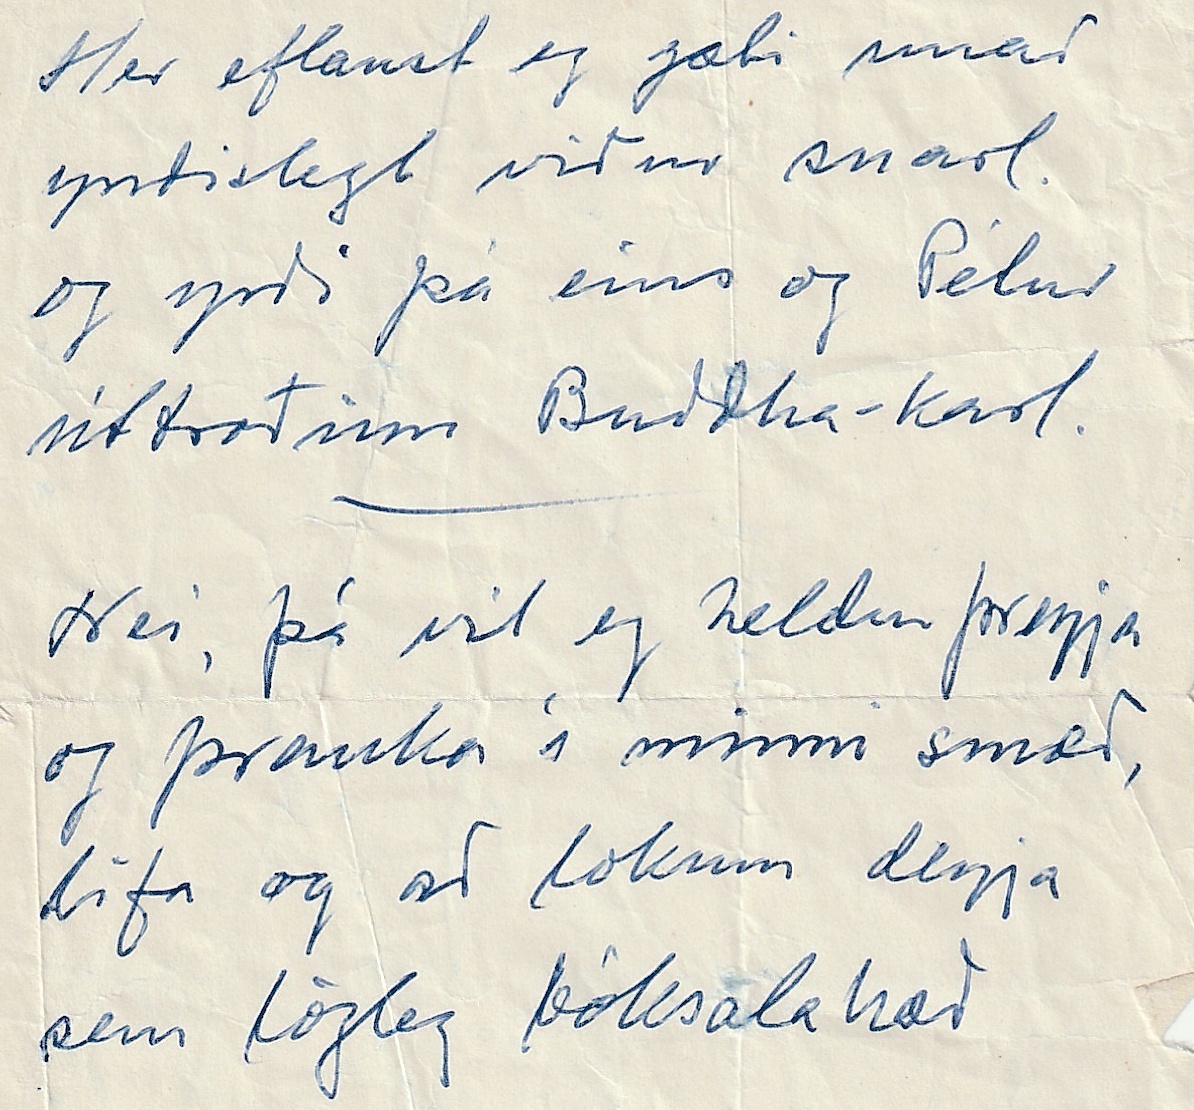 Her eflaust eg gæti unað
yndislegt viður snarl.
og yrði þá eins og Pétur
úttroðinn Buddha-karl.
Nei, þá vil eg heldur þreyja
og þrauka í minni smæð,
lifa og að lokum deyja
sem lögleg bóksalahæð